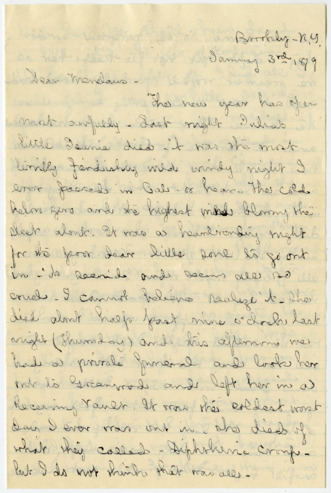 Brooklyn - N.Y.
January 3rd, 1879
Dear Mendaus -
The new year has open
most awfully - Last night Julia's
little Fannie died - it was the most
terribly fendishly wild windy night I
ever passed in Cala - or here. The cold
below zero and the highest wind blowing the
sleet about. It was a heartrending night
for the poor dear little soul to go out
in - It seemed and seems all so
cruel. I cannot believe realize it - She
died about half past nine o'clock last
night (Thursday) and this afternoon we
had a private funeral and took her
out to Greenwood and left her in a
Receiving Vault. It was the coldest worst
day I ever was out in - She died of
what they called - Diphtheric croup -
but I do not think that was all -